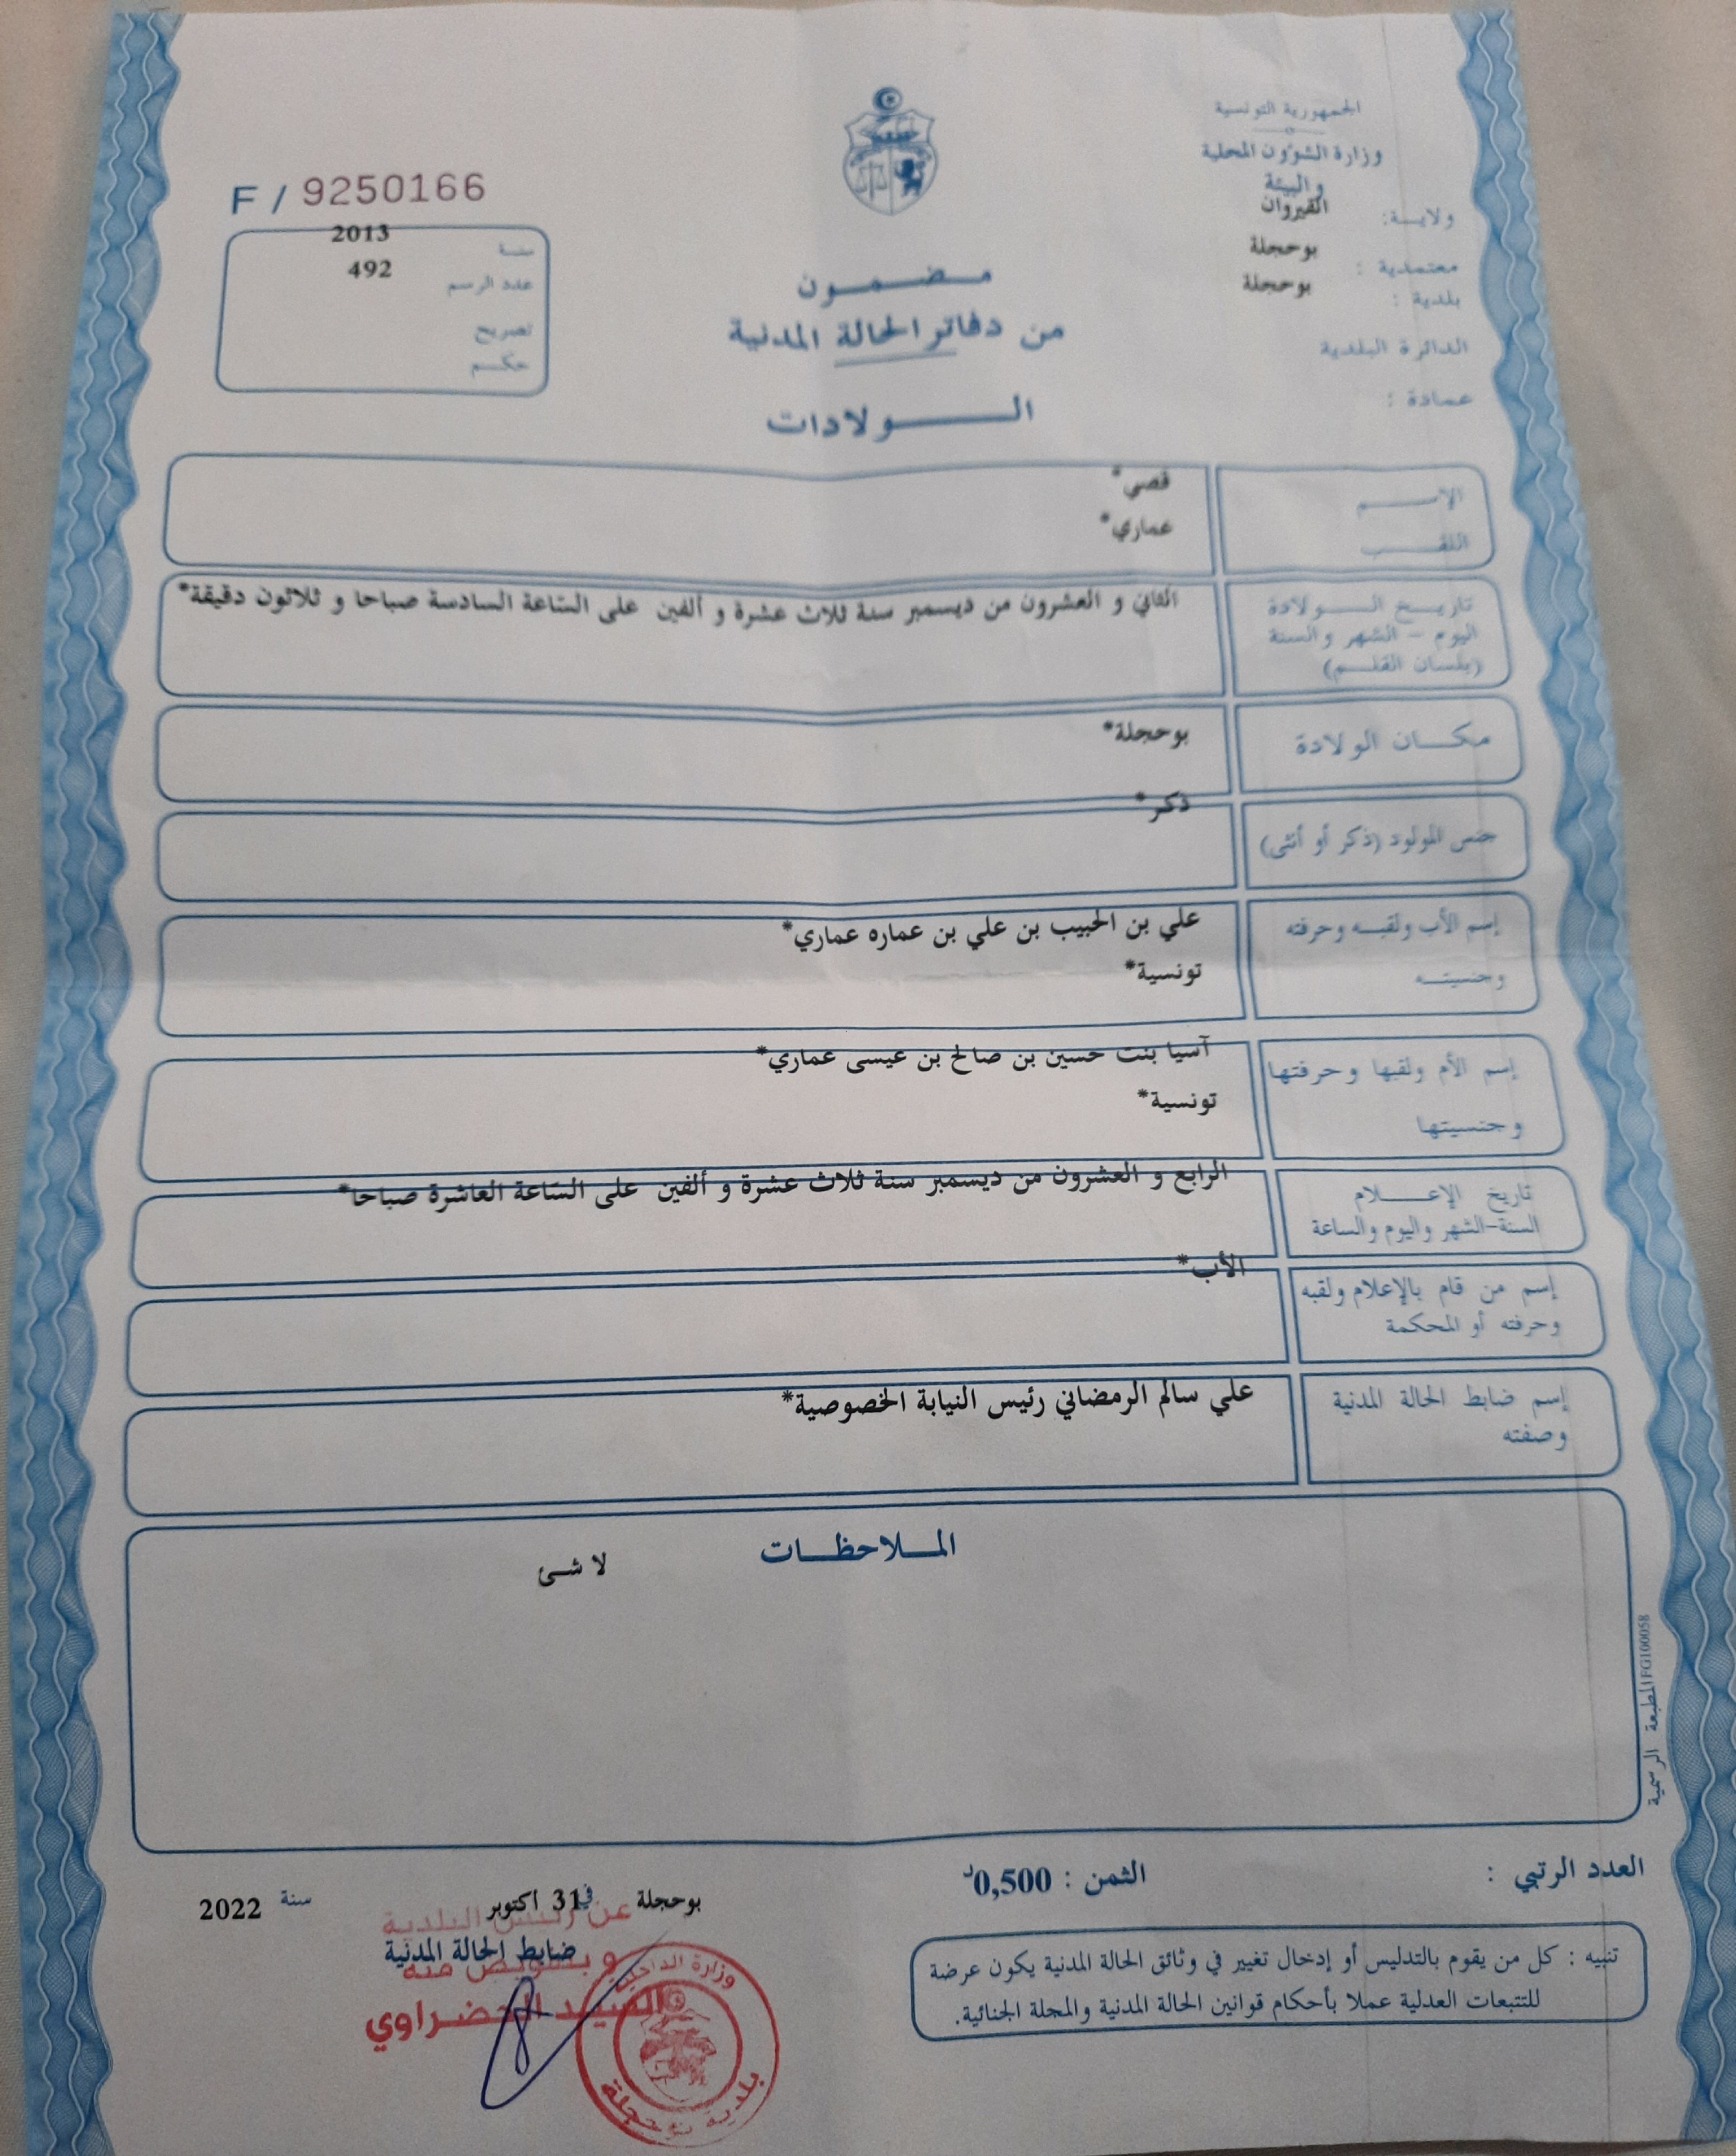 الجمهورية التونسية
وزارة الشؤون المحلية
والبيئة
ولايـــة: القيروان
معتمدية : بوحجلة
بلدية : بوحجلة
الدائرة البلدية
عمادة :
F / 9250166
سنة 2013
عدد الرسم 492
تصريح
حكم
مضمون
من دفاتر الحالة المدنية
الولادات
الإسم قصي*
اللقب عماري*
تاريخ الولادة
اليوم - الشهر والسنة
(بلسان القلم)
الثاني و العشرون من ديسمبر سنة ثلاث عشرة و ألفين على الساعة السادسة صباحا و ثلاثون دقيقة*
مكان الولادة بوحجلة*
جنس المولود (ذكر أو أنثى) ذكر*
إسم الأب ولقبه وحرفته
وجنسيته
علي بن الحبيب بن علي بن عماره عماري*
تونسية*
إسم الأم ولقبها وحرفتها
وجنسيتها
آسيا بنت حسين بن صالح بن عيسى عماري*
تونسية*
تاريخ الإعلام
السنة-الشهر واليوم والساعة
الرابع و العشرون من ديسمبر سنة ثلاث عشرة و ألفين على الساعة العاشرة صباحا*
إسم من قام بالإعلام ولقبه
وحرفته أو المحكمة
الأب*
إسم ضابط الحالة المدنية
وصفته
علي سالم الرمضاني رئيس النيابة الخصوصية*
الملاحظات
لا شئ
المطبعة الرسمية FG100058
العدد الرتبي :
الثمن : 0,500د
بوحجلة في 31 اكتوبر سنة 2022
ضابط الحالة المدنية
عن رئيس البلدية
وبتفويض منه
السيد الخضراوي
وزارة الداخلية
بلدية بوحجلة
تنبيه : كل من يقوم بالتدليس أو إدخال تغيير في وثائق الحالة المدنية يكون عرضة
للتتبعات العدلية عملا بأحكام قوانين الحالة المدنية والمجلة الجنائية.